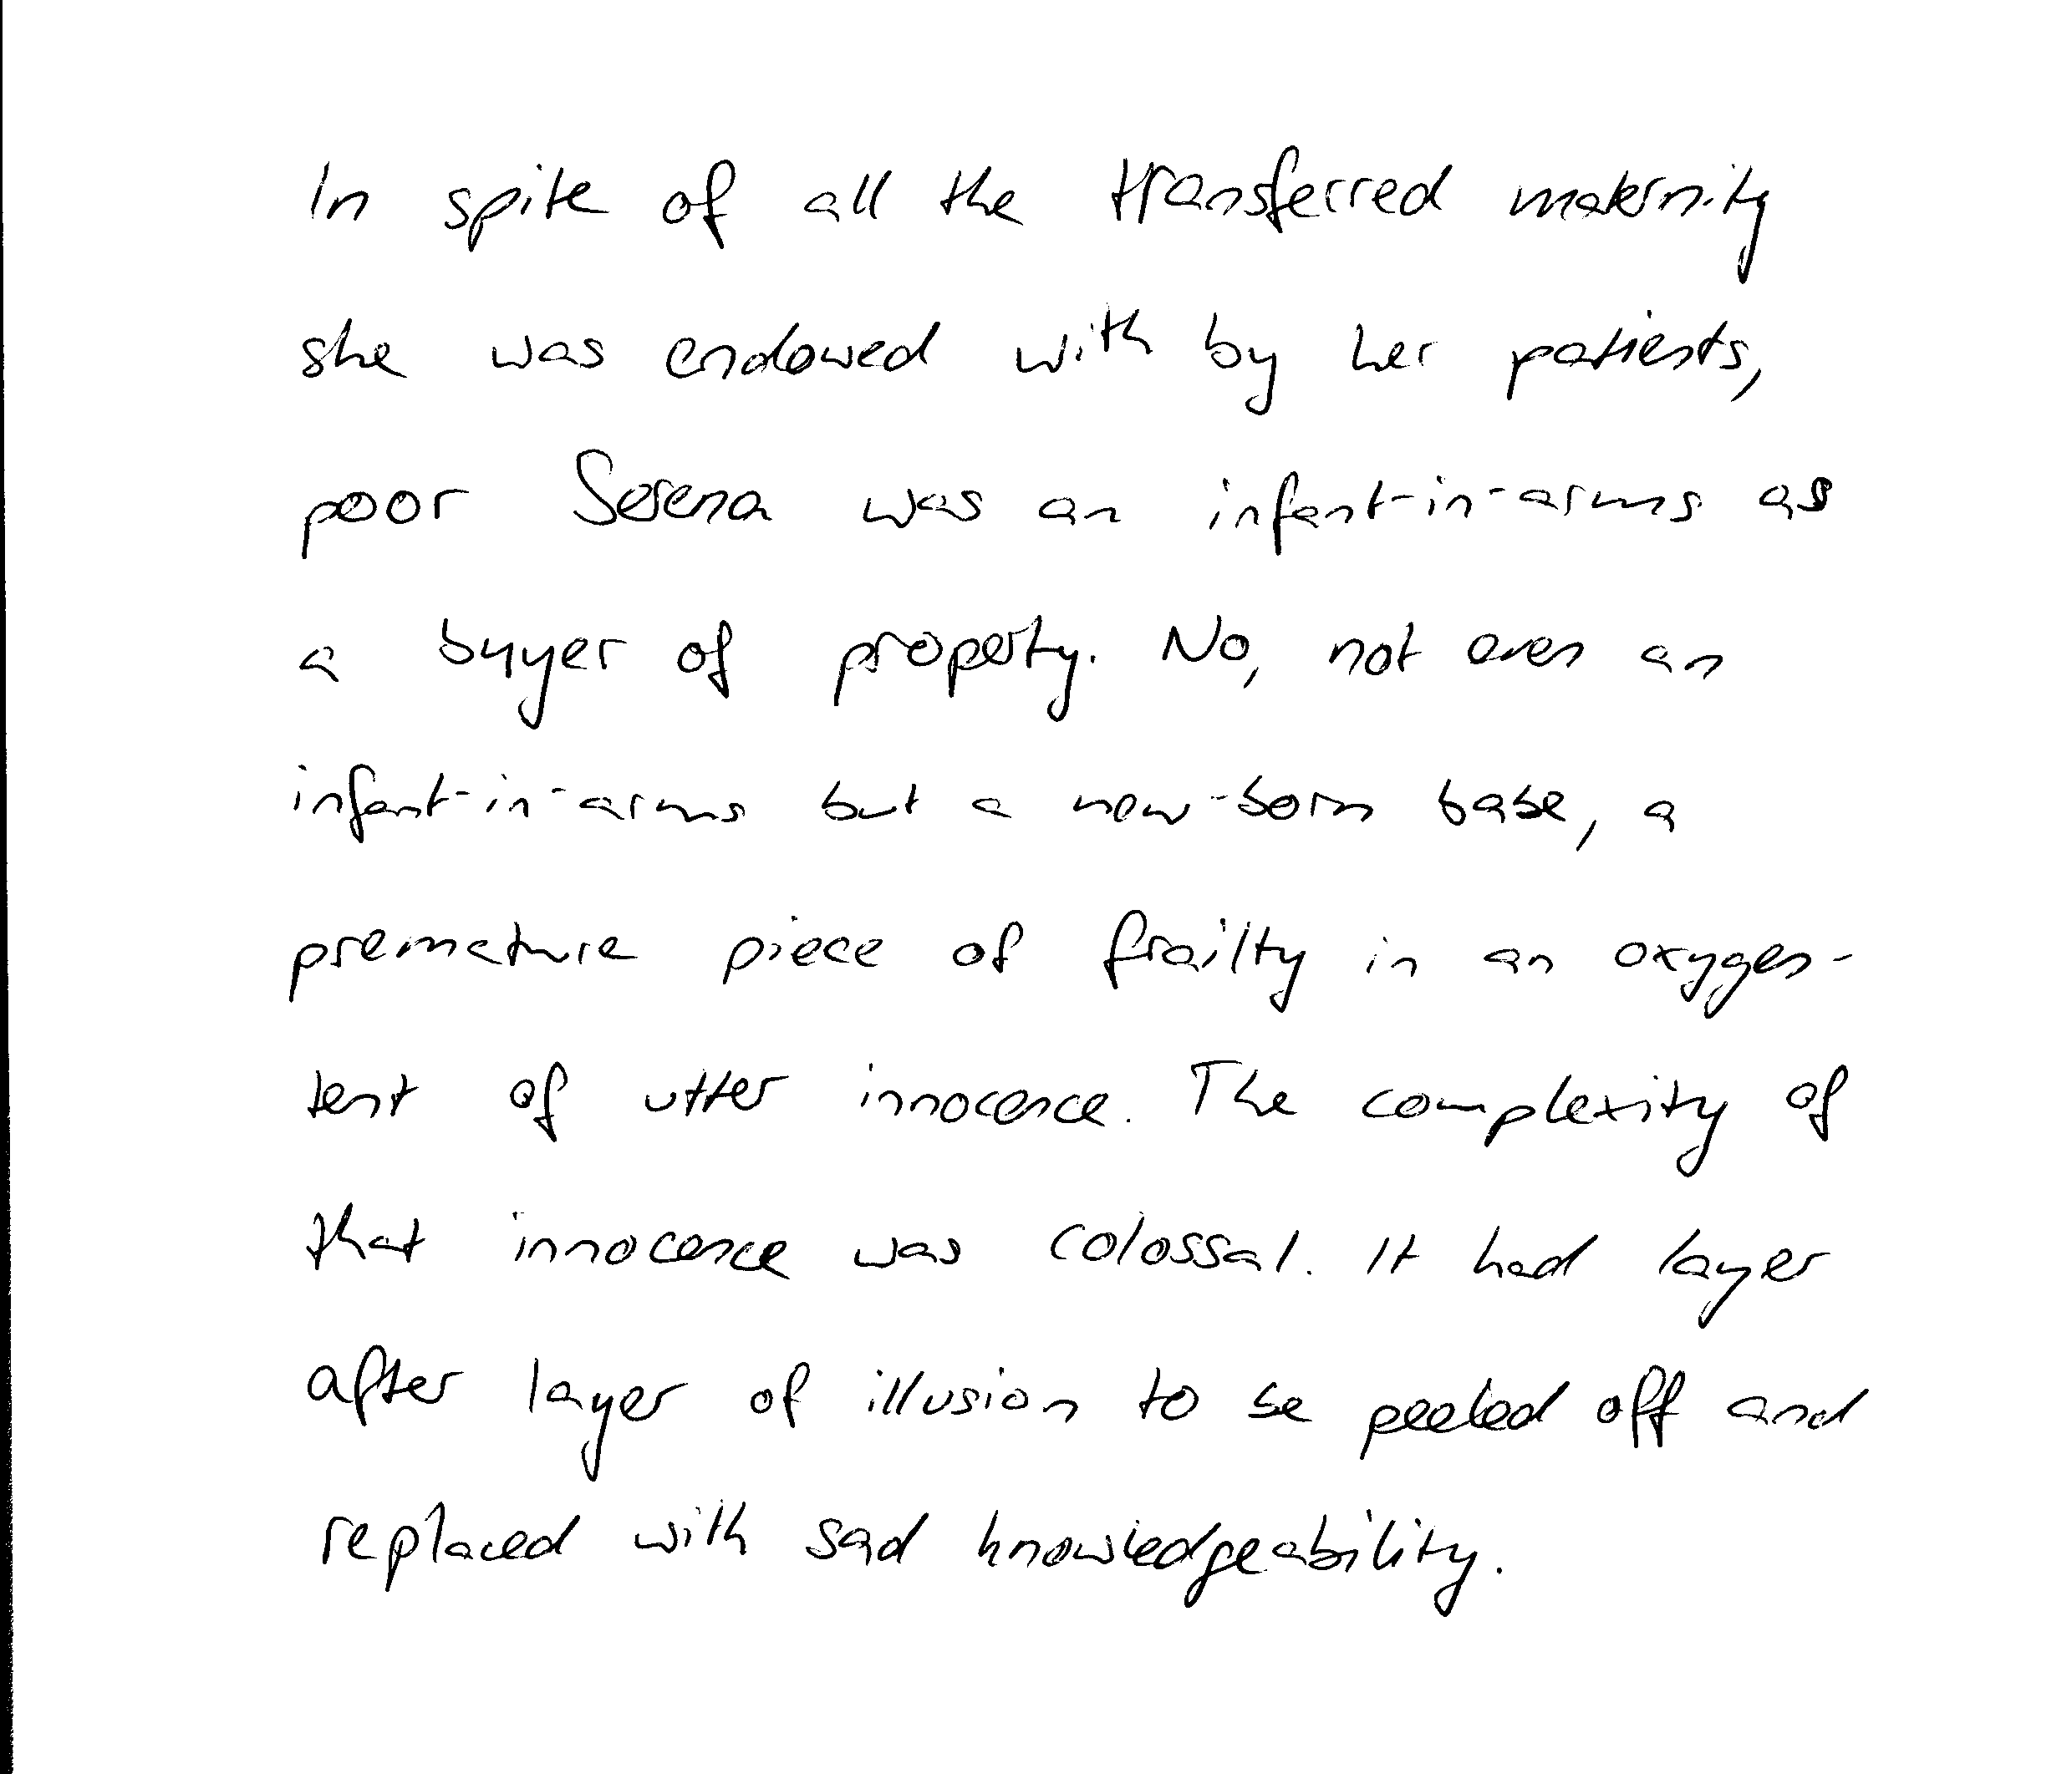 In spite of all the transferred maternity
she was endowed with by her patients,
poor Serena was an infant-in-arms as
a buyer of property. No, not even an
infant-in-arms but a new-born babe, a
premature piece of frailty in an oxygen-
tent of utter innocence. The complexity of
that innocence was colossal. It had layer
after layer of illusion to be peeled off and
replaced with sad knowledgeability.